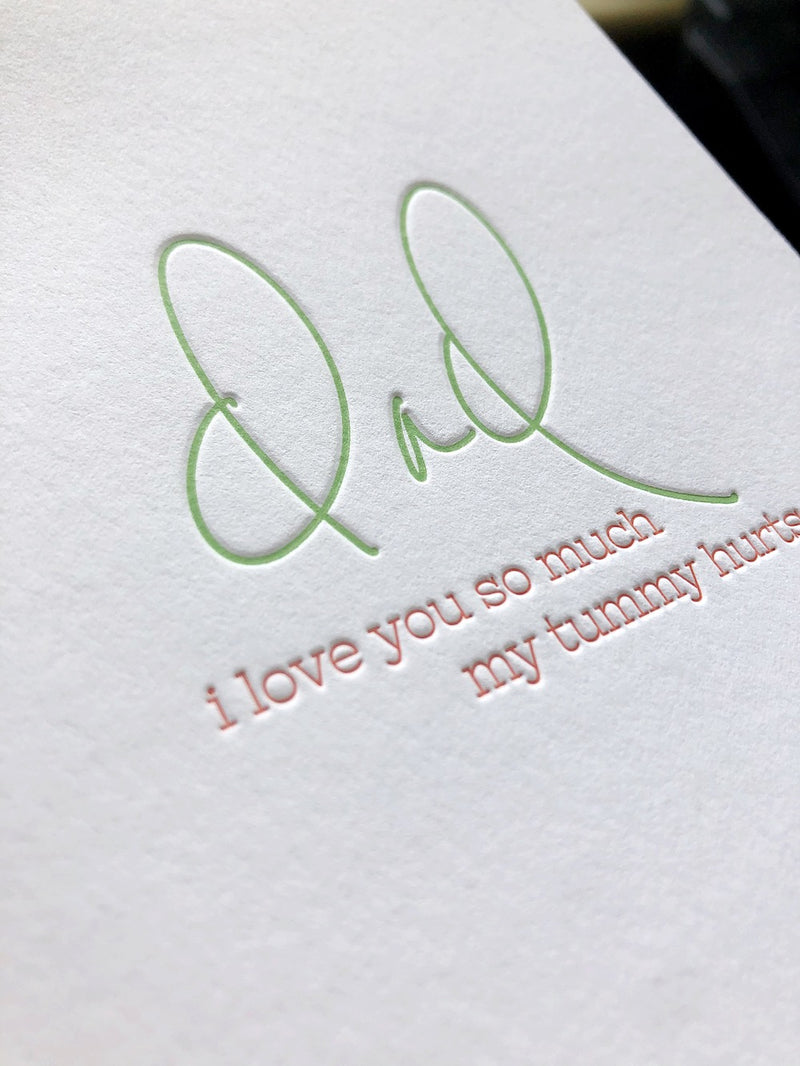 Dad
i love you so much
my tummy hurts